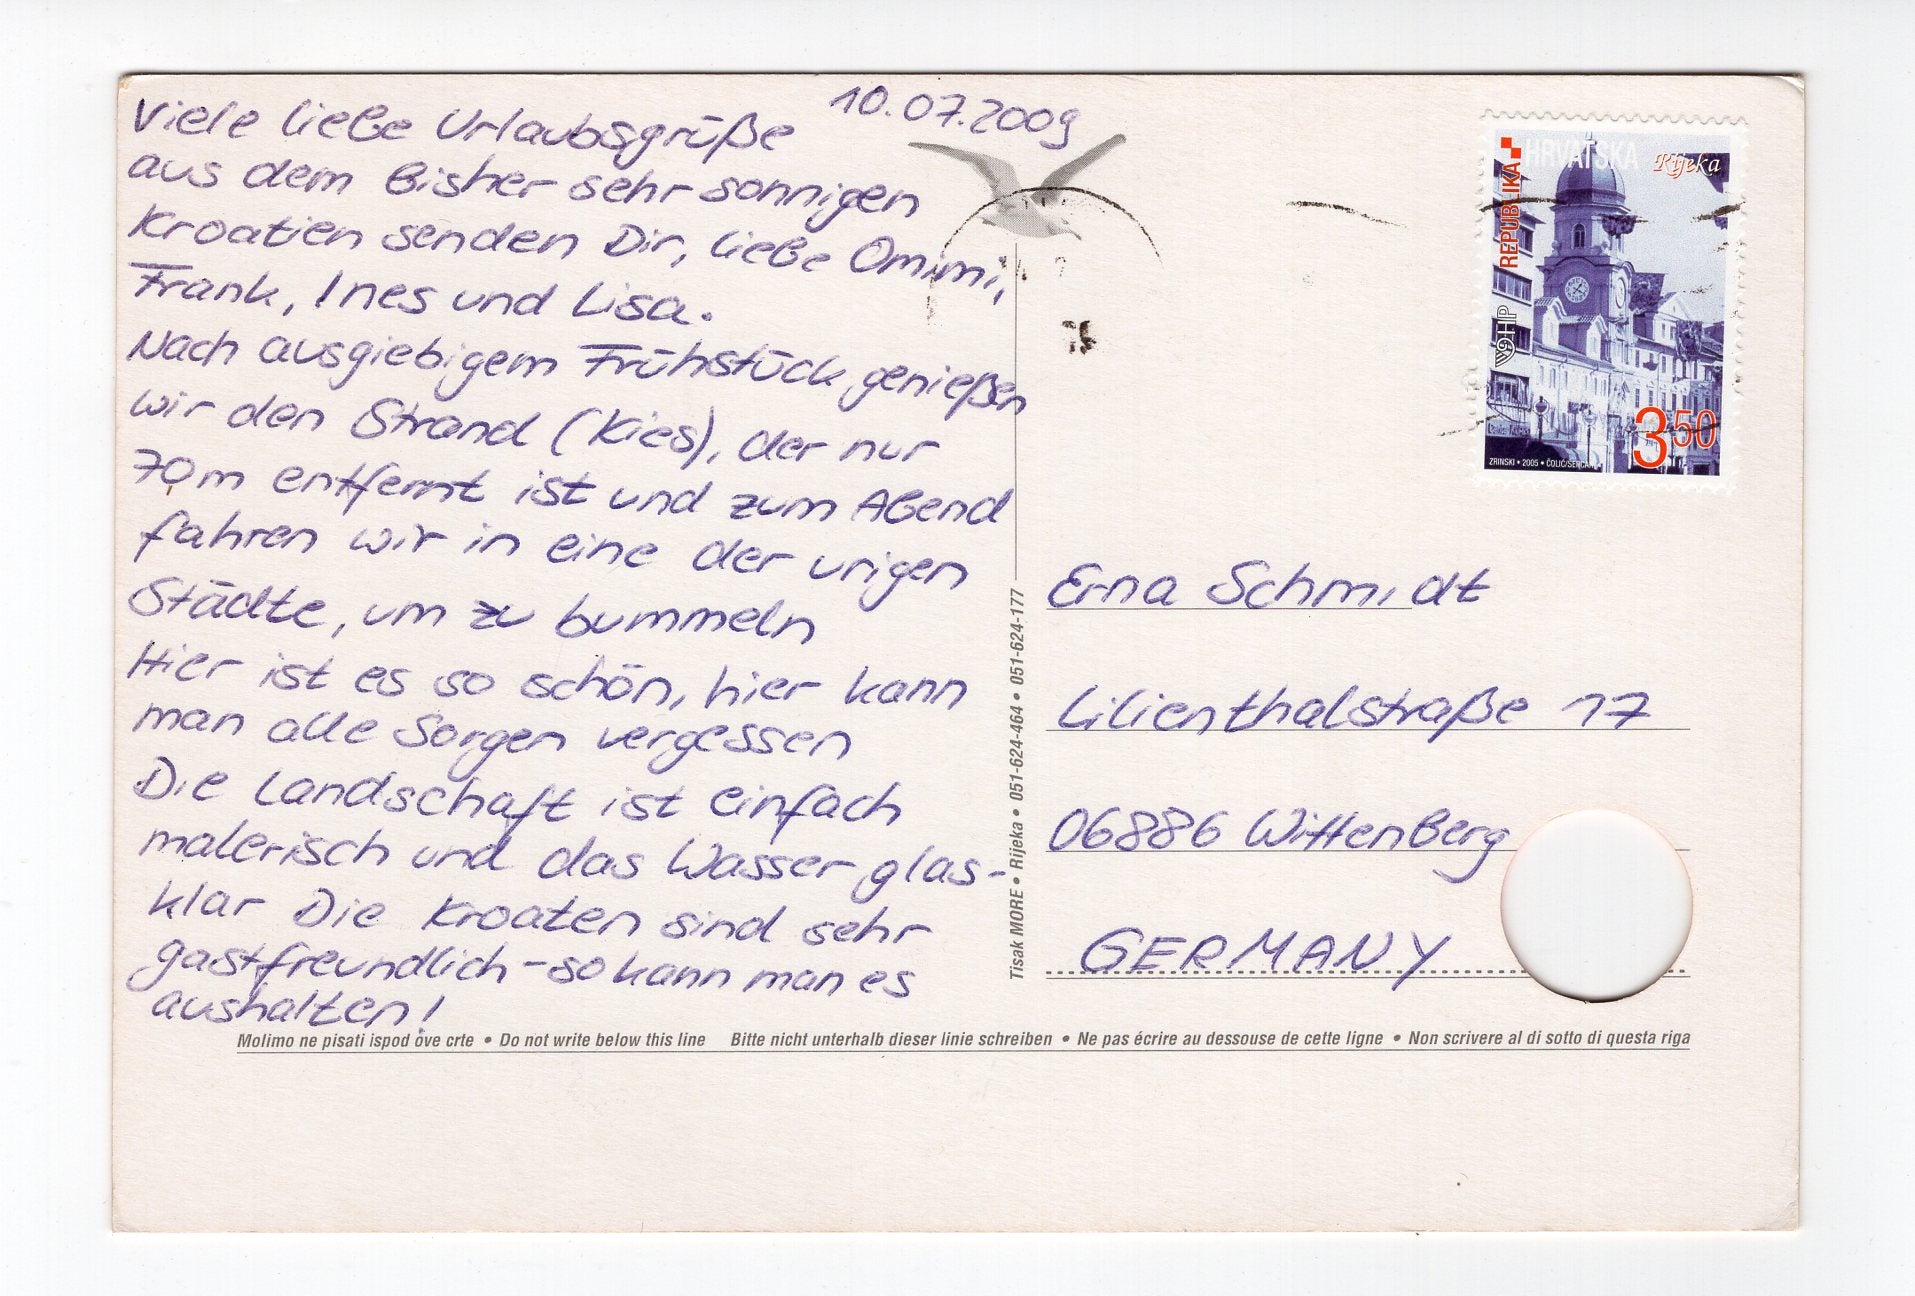 10.07.2009
Viele liebe Urlaubsgrüße
aus dem bisher sehr sonnigen
Kroatien senden Dir, liebe Omimi,
Frank, Ines und Lisa.
Nach ausgiebigem Frühstück genießen
wir den Strand (Kies), der nur
70m entfernt ist und zum Abend
fahren wir in eine der urigen
Städte, um zu bummeln
Hier ist es so schön, hier kann
man alle Sorgen vergessen
Die Landschaft ist einfach
malerisch und das Wasser glas-
klar Die Kroaten sind sehr
gastfreundlich - so kann man es
aushalten!
REPUBLIKA HRVATSKA
Rijeka
HP
350
ZRINSKI • 2005 •
Erna Schmidt
Lilienthalstraße 17
06886 Wittenberg
GERMANY
Tisak MORE • Rijeka • 051-624-464 • 051-624-177
Molimo ne pisati ispod ove crte • Do not write below this line Bitte nicht unterhalb dieser linie schreiben • Ne pas écrire au dessouse de cette ligne • Non scrivere al di sotto di questa riga